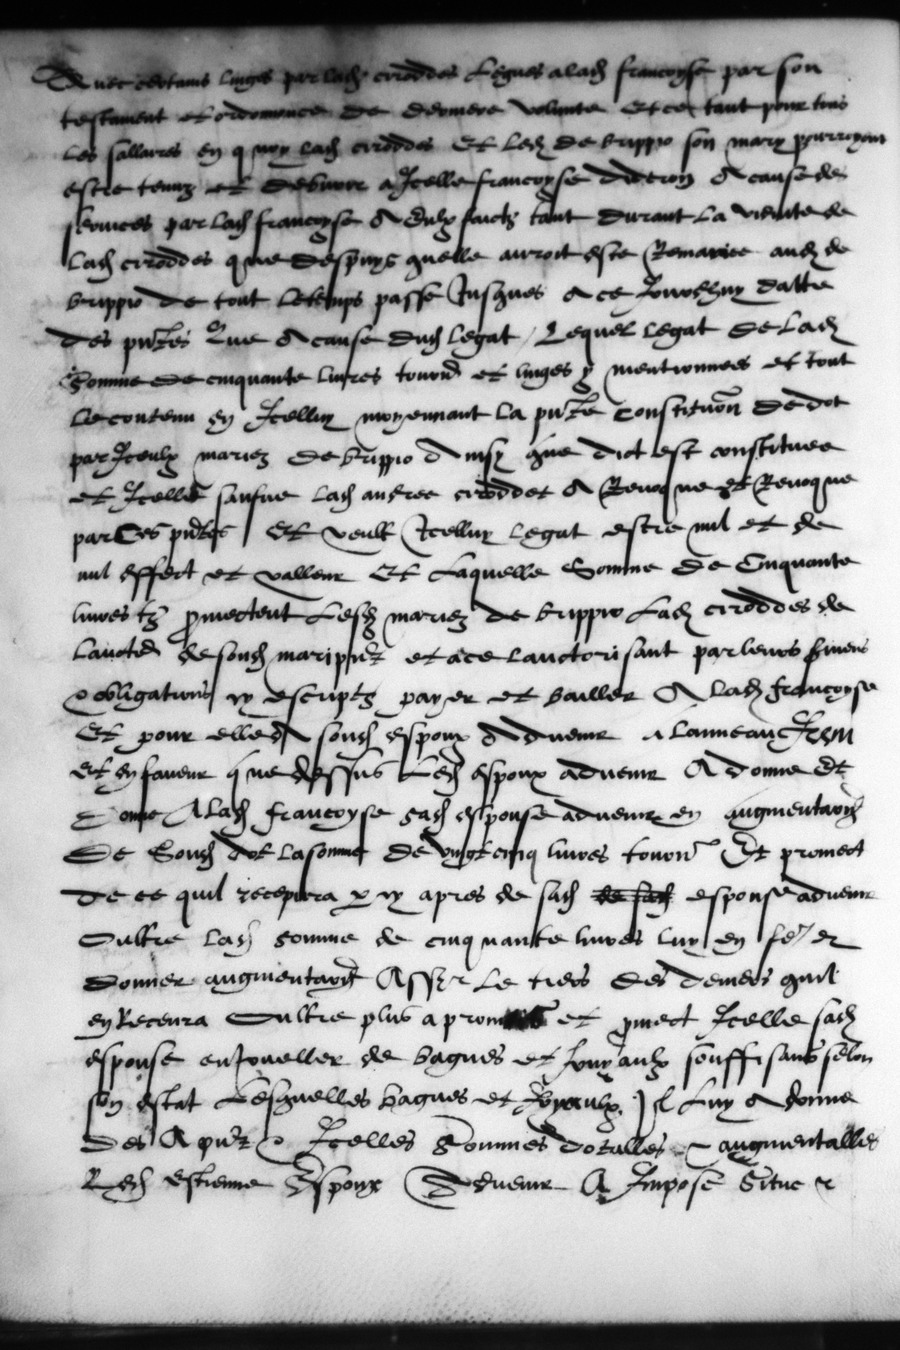 Avec certains linges par lad ciroddes legues a lad francoyse par son
testament et ordonnance de derniere volunte Et ce tant pour tous
les sallaires en quoy lad ciroddes Et led de brippio son mary pourroyent
estre tenuz et debvoir a Icelle francoyse A cause de
services par lad francoyse A eulx faictz tant durant la viduite de
lad ciroddes que despuys quelle auroit este Remariee aud de
brippio de tout le temps passe Jusques a ce Jourdhuy datte
des pntes Que A cause dud legat Lequel legat de lad
Somme de cinquante livres tourn et linges y mentionnes et tout
le contenu en Icelluy moyennant la pnte constitution de dot
par Iceulx mariez de brippio Ainsy que dict est constituee
et Icelle saufve lad andree ciroddes A Revoque et Revoque
par Ces pntes Et veult Icelluy legat estre nul et de
nul effect et valleur Et Laquelle Somme de Cinquante
livres tz promectent Lesd mariez de brippio Lad ciroddes de
lauctte de sond mari pnt et a ce lauctorisant par leurs
obligations cy escriptz payer et bailler A lad francoyse
Et pour elle A sond espoux Advenir a lanneau
Et en faveur que dessus Led espoux advenir A donne Et
Donne A lad francoyse sad esponse advenir en augmentation
De Sond dot la somme De vingt cinq livres tourn Et promect
de ce quil recepvra cy apres de sad de sad esponse advenir
Oultre lad somme de cinquante livres luy en
donner augmentation Assez Le tiers des deniers quil
en Recevra Oultre plus a promis et pmect Icelle sad
esponse enJoueller de bagues et Jouyaulx souffisans selon
son estat Lesquelles bagues et Joyaulx Il Luy A donne
Des A pnt Icelles Sommes dotalles augmentalles
Led estienne Espoux Advenir A Impose Situe